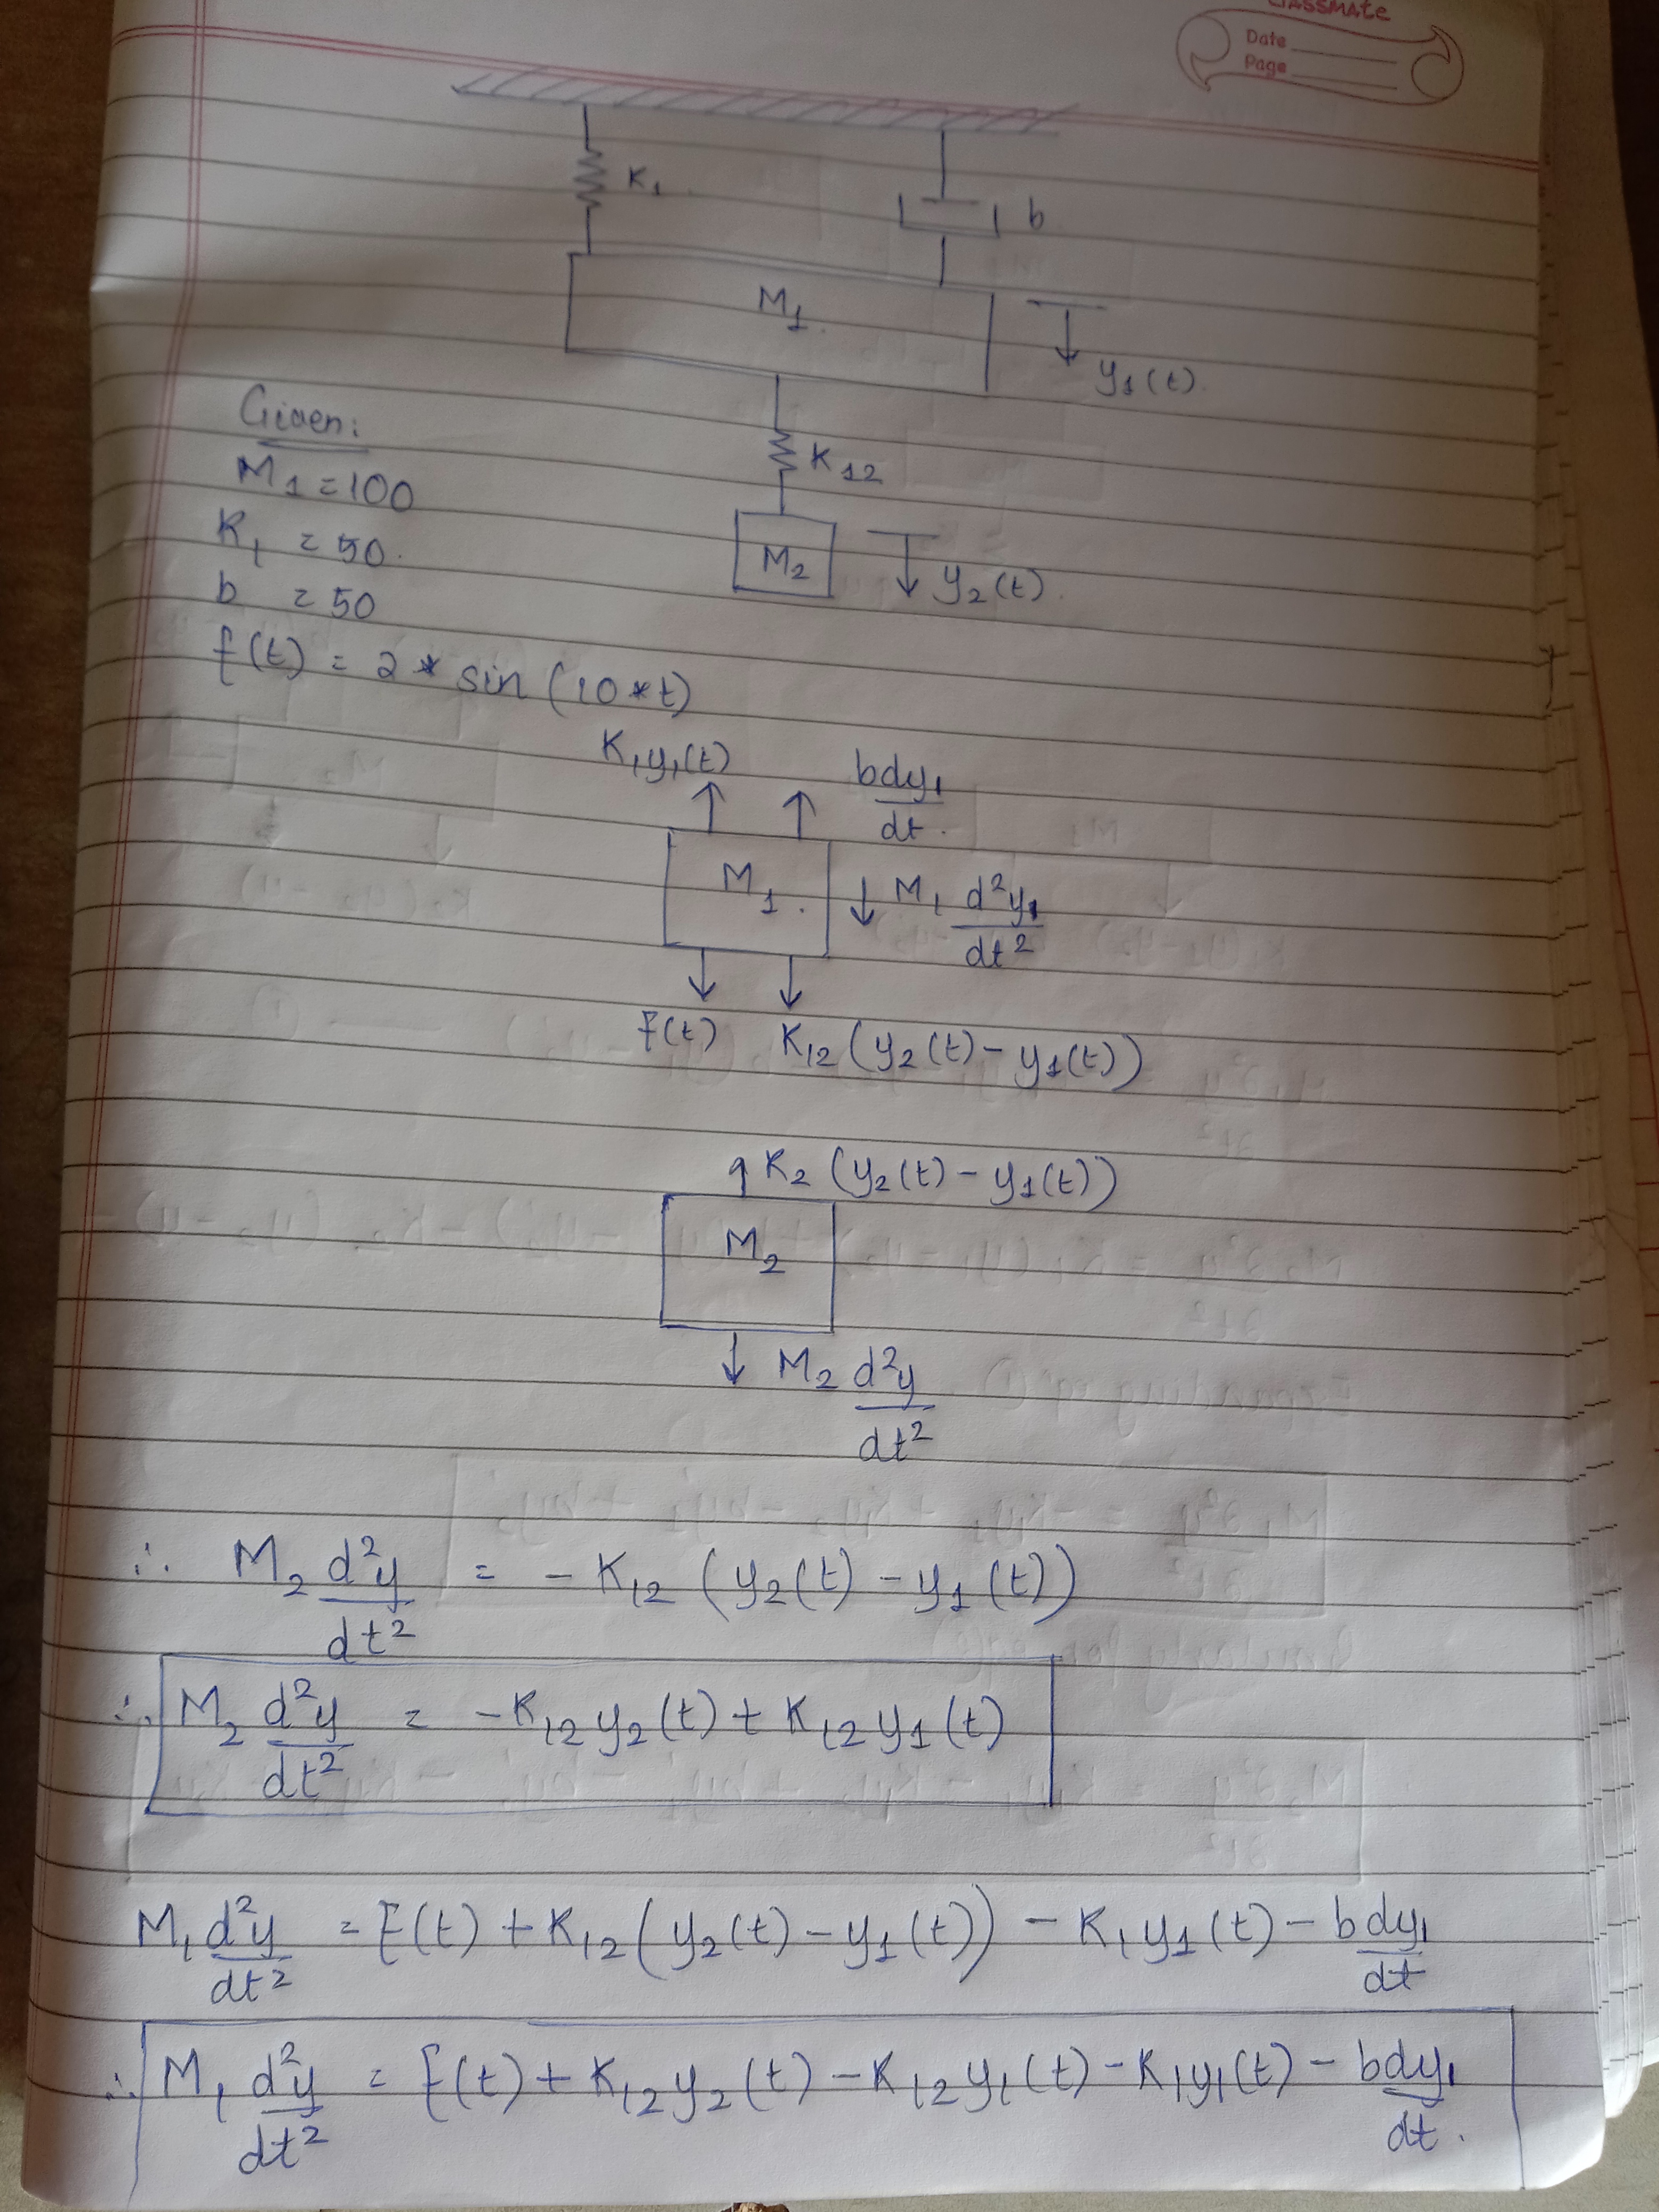 classmate
Date
Page
K₁
b
M₁
y₁(t)
Given:
M₁ = 100
K₁₂
K₁ = 50
M₂
y₂(t)
b = 50
f(t) = 2 * sin (10 * t)
K₁y₁(t)
bdy₁/dt
M₁
M₁ d²y₁/dt²
F(t) K₁₂ (y₂(t) - y₁(t))
K₂ (y₂(t) - y₁(t))
M₂
M₂ d²y/dt²
∴ M₂ d²y/dt² = - K₁₂ (y₂(t) - y₁(t))
∴ M₂ d²y/dt² = -K₁₂ y₂(t) + K₁₂ y₁(t)
M₁ d²y/dt² = F(t) + K₁₂ (y₂(t) - y₁(t)) - K₁ y₁(t) - bdy₁/dt
∴ M₁ d²y/dt² = F(t) + K₁₂ y₂(t) - K₁₂ y₁(t) - K₁y₁(t) - bdy₁/dt.